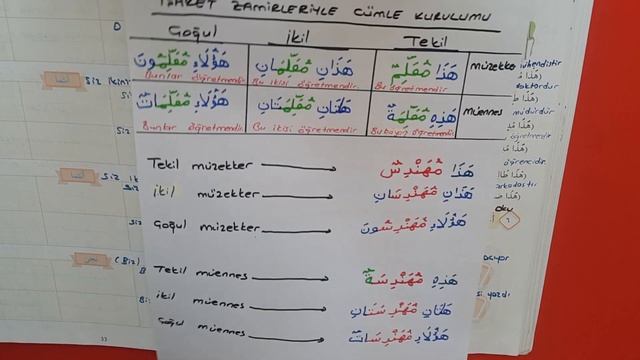 İŞARET ZAMİRLERİYLE CÜMLE KURULUMU
Çoğul İkil Tekil
هَؤُلَاءِ مُعَلِّمُونَ هَذَانِ مُعَلِّمَانِ هَذَا مُعَلِّمٌ müzekker
Bunlar öğretmendir. Bu ikisi öğretmendir. Bu öğretmendir.
هَؤُلَاءِ مُعَلِّمَاتٌ هَتَانِ مُعَلِّمَتَانِ هَذِهِ مُعَلِّمَةٌ müennes
Bunlar öğretmendir. Bu ikisi öğretmendir. Bu bayan öğretmendir.
Tekil müzekker هَذَا مُهَنْدِسٌ
İkil müzekker هَذَانِ مُهَنْدِسَانِ
Çoğul müzekker هَؤُلَاءِ مُهَنْدِسُونَ
Tekil müennes هَذِهِ مُهَنْدِسَةٌ
ikil müennes هَتَانِ مُهَنْدِسَتَانِ
Çoğul müennes هَؤُلَاءِ مُهَنْدِسَاتٌ